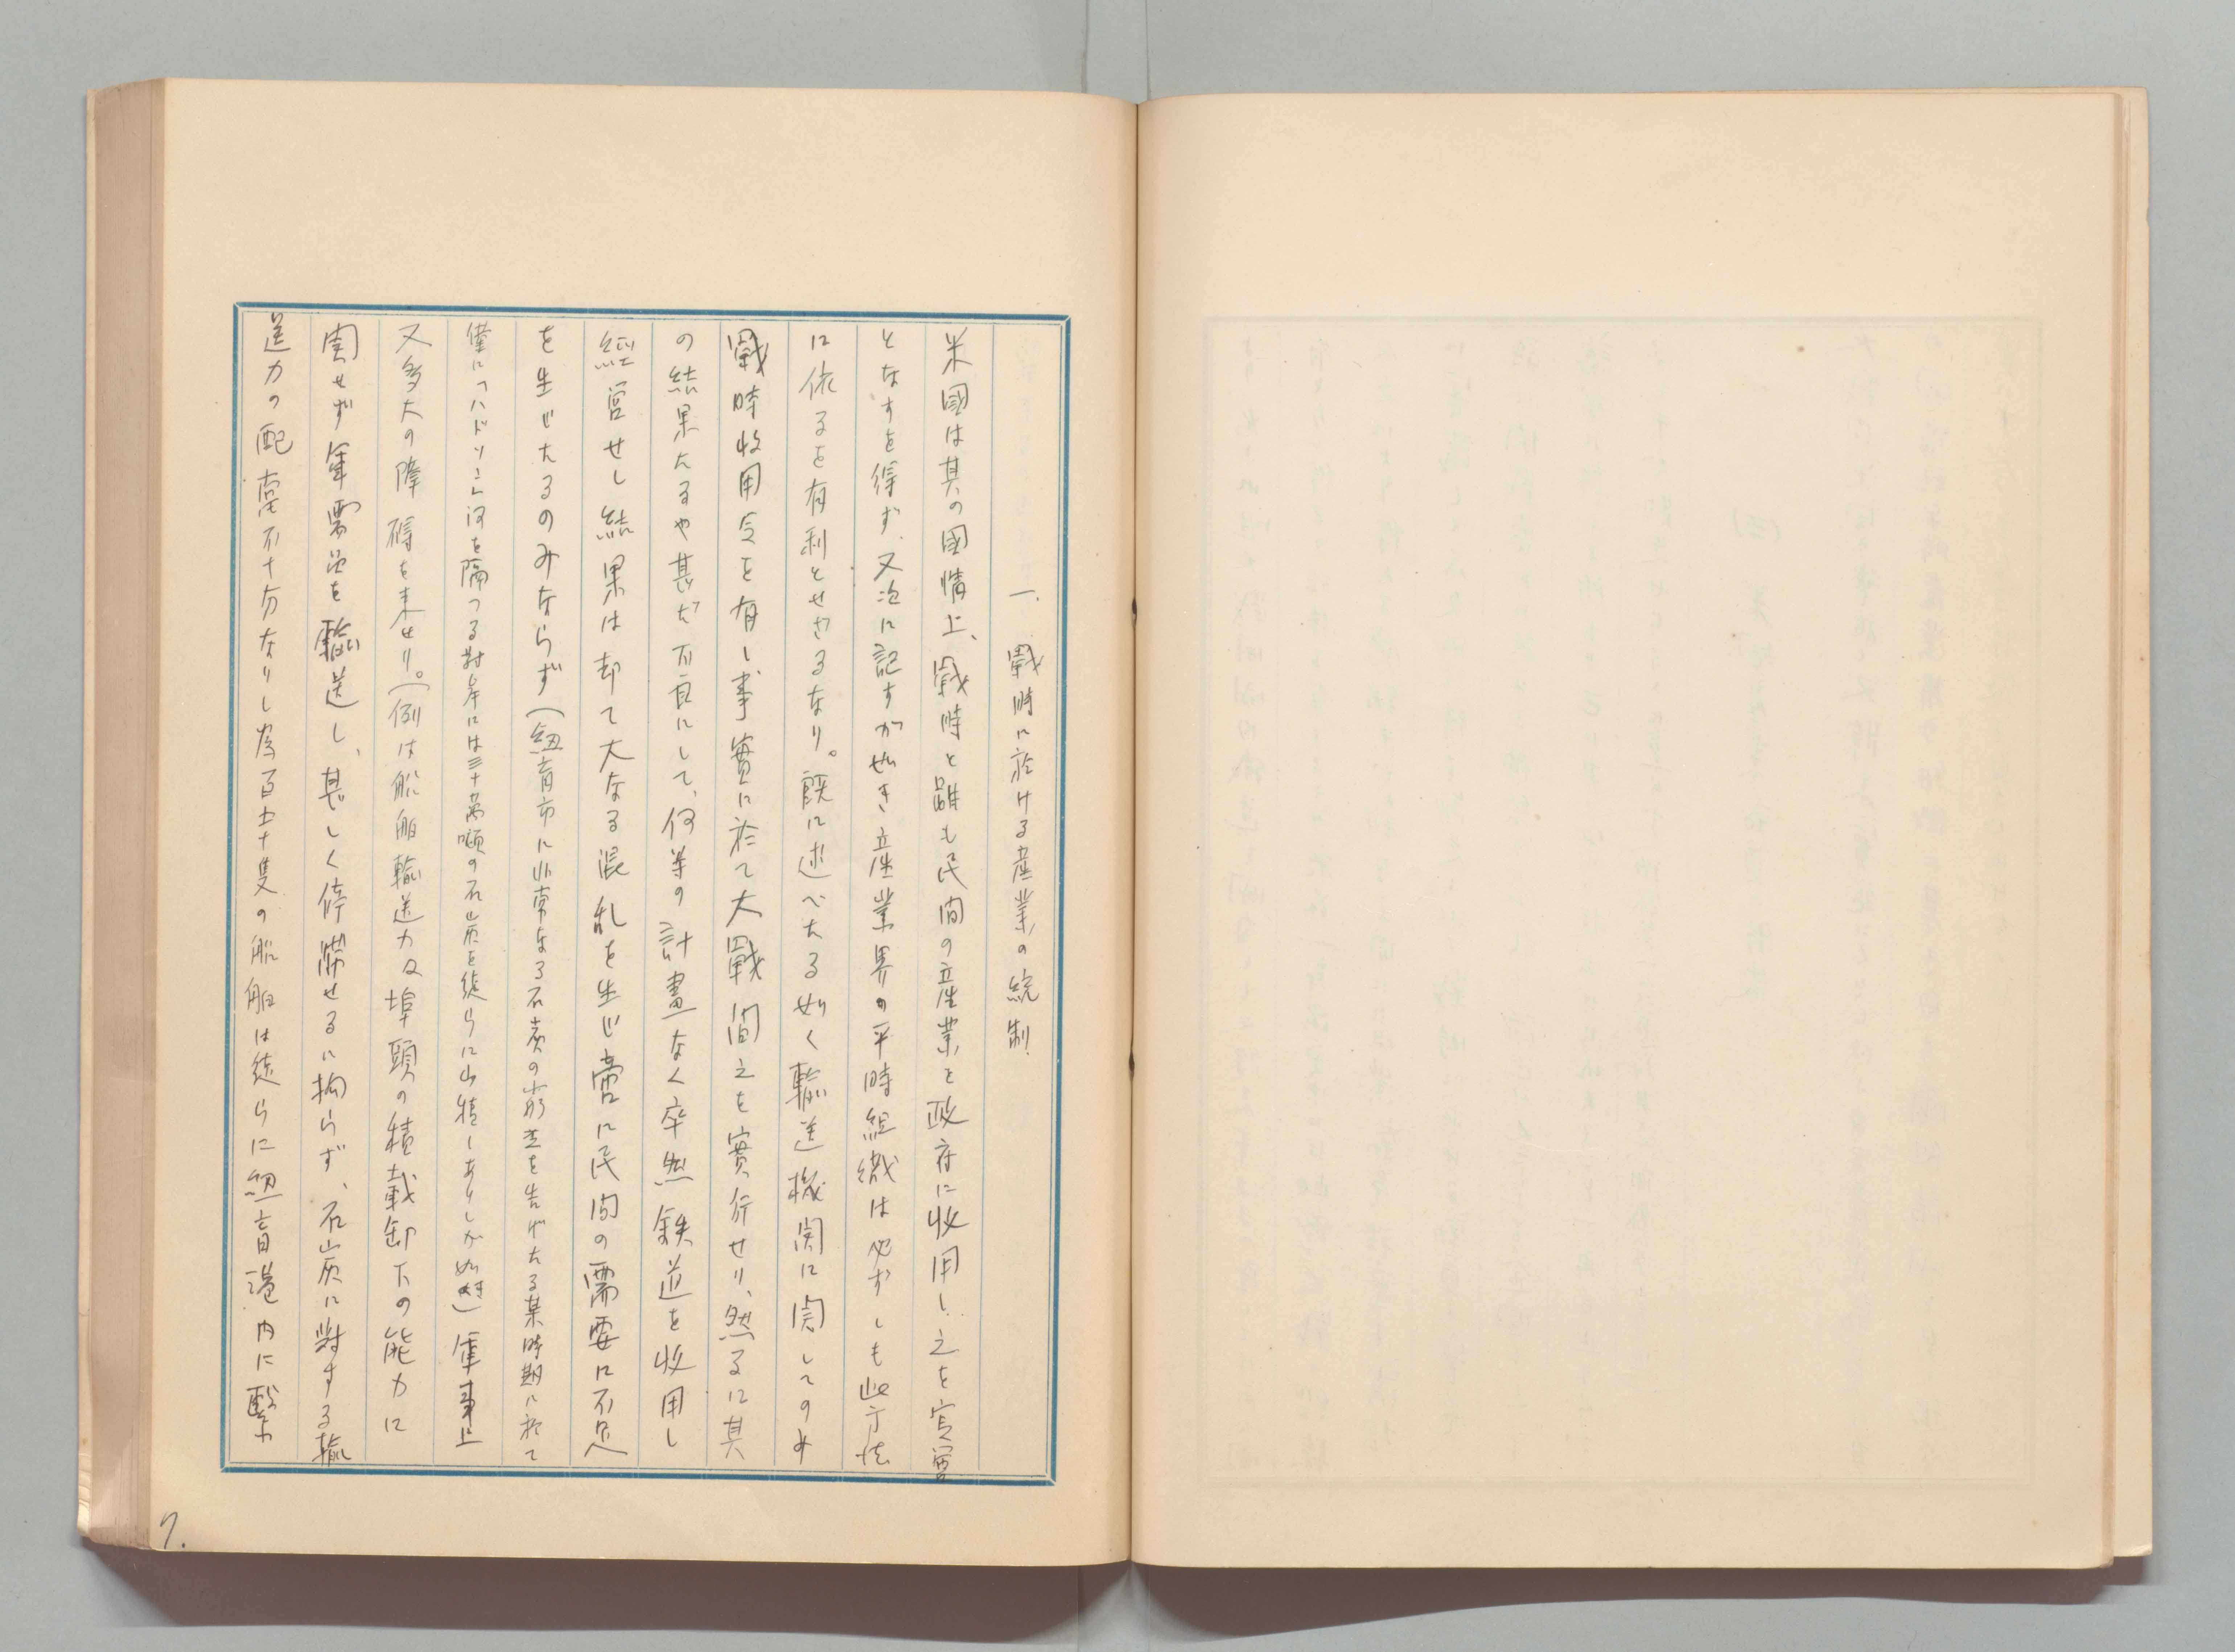 一、戰時に於ける産業の統制
米國は其の國情上、戰時と雖も民間の産業を政府に收用し、之を官營
となすを得ず、又次に記すが如き産業界の平時組織は必ずしも此方法
に依るを有利とせざるなり。既に述べたる如く輸送機関に関してのみ
戰時收用令を有し、事實に於て大戰間之を實行せり、然るに其
の結果たるや甚だ不良にして、何等の計畫なく卒然鉄道を收用し
經営せし結果は却て大なる混乱を生じ啻に民間の需要に不足
を生じたるのみならず（紐育市に非常なる石炭の窮乏を告げたる某時期に於て
僅に「ハドソン」河を隔つる対岸には三十萬噸の石炭を徒らに山積しありしが如き）軍事上
又多大の障碍を来せり。（例は船舶輸送力及埠頭の積載卸下の能力に
関せず軍需品を輸送し、甚しく停滞せるに拘らず、石炭に対する輸
送力の配當不十分なりし為百五十隻の船舶は徒らに紐育港内に繋
7.